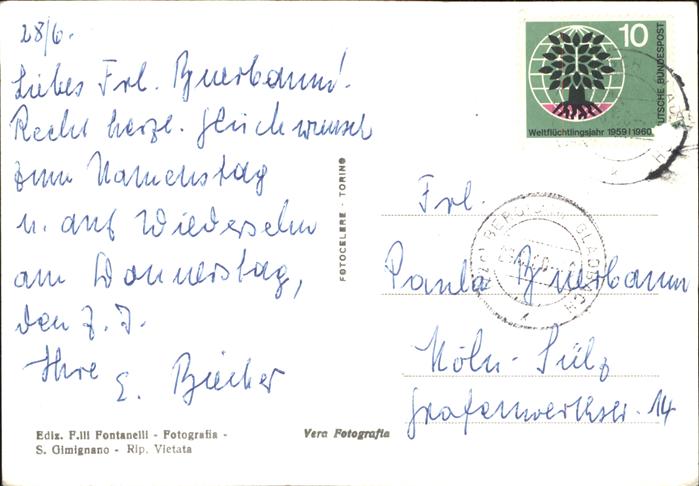 28/6.
Liebes Frl. Buerbaum!
Recht herzl. Glückwunsch
zum Namenstag
u. auf Wiedersehn
am Donnerstag,
den 7. 7.
Ihre E. Biecker
Ediz. F.lli Fontanelli - Fotografia -
S. Gimignano - Rip. Vietata
Vera Fotografia
FOTOCELERE - TORINO
10
DEUTSCHE BUNDESPOST
Weltflüchtlingsjahr 1959|1960
BERGISCH GLADBACH
Frl.
Paula Buerbaum
Köln-Sülz
Grafenwerthstr. 14